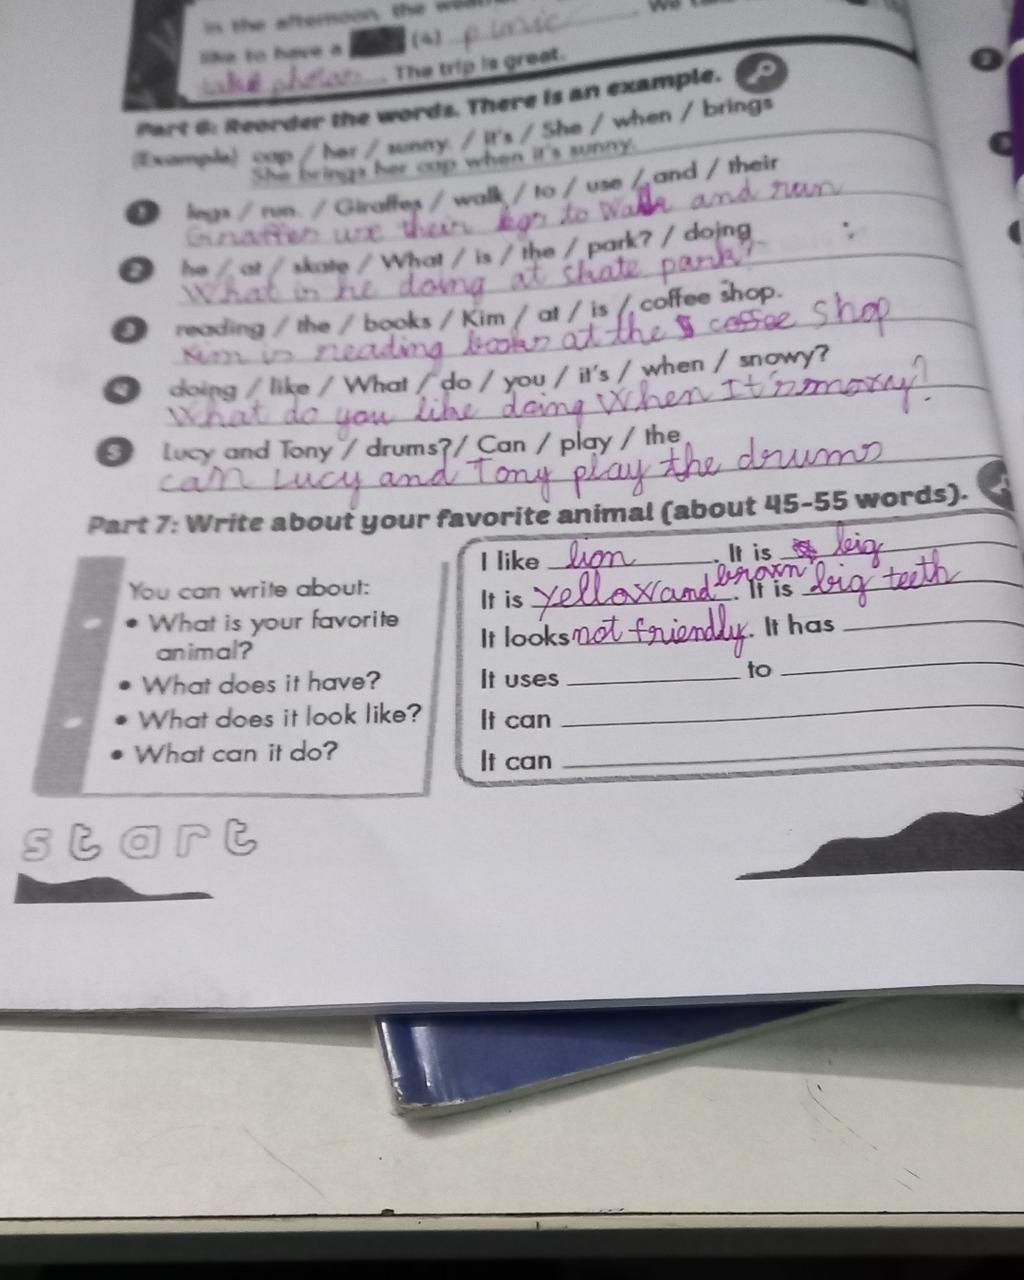 in the afternoon, the
like to have a (4) picnic We
take photos. The trip is great.
Part 6: Reorder the words. There is an example.
(Example) cap / her / sunny. / it's / She / when / brings
She brings her cap when it's sunny.
1 legs / run. / Giraffes / walk / to / use / and / their
Giraffes use their legs to walk and run
2 he / at / skate / What / is / the / park? / doing
What is he doing at skate park?
3 reading / the / books / Kim / at / is / coffee shop.
Kim is reading books at the coffee shop
4 doing / like / What / do / you / it's / when / snowy?
What do you like doing When It's snowy?
5 Lucy and Tony / drums? / Can / play / the
can Lucy and Tony play the drums
Part 7: Write about your favorite animal (about 45-55 words).
You can write about:
• What is your favorite
animal?
• What does it have?
• What does it look like?
• What can it do?
I like lion. It is big
It is yellow and brown. It is big teeth
It looks not friendly. It has
It uses to
It can
It can
start